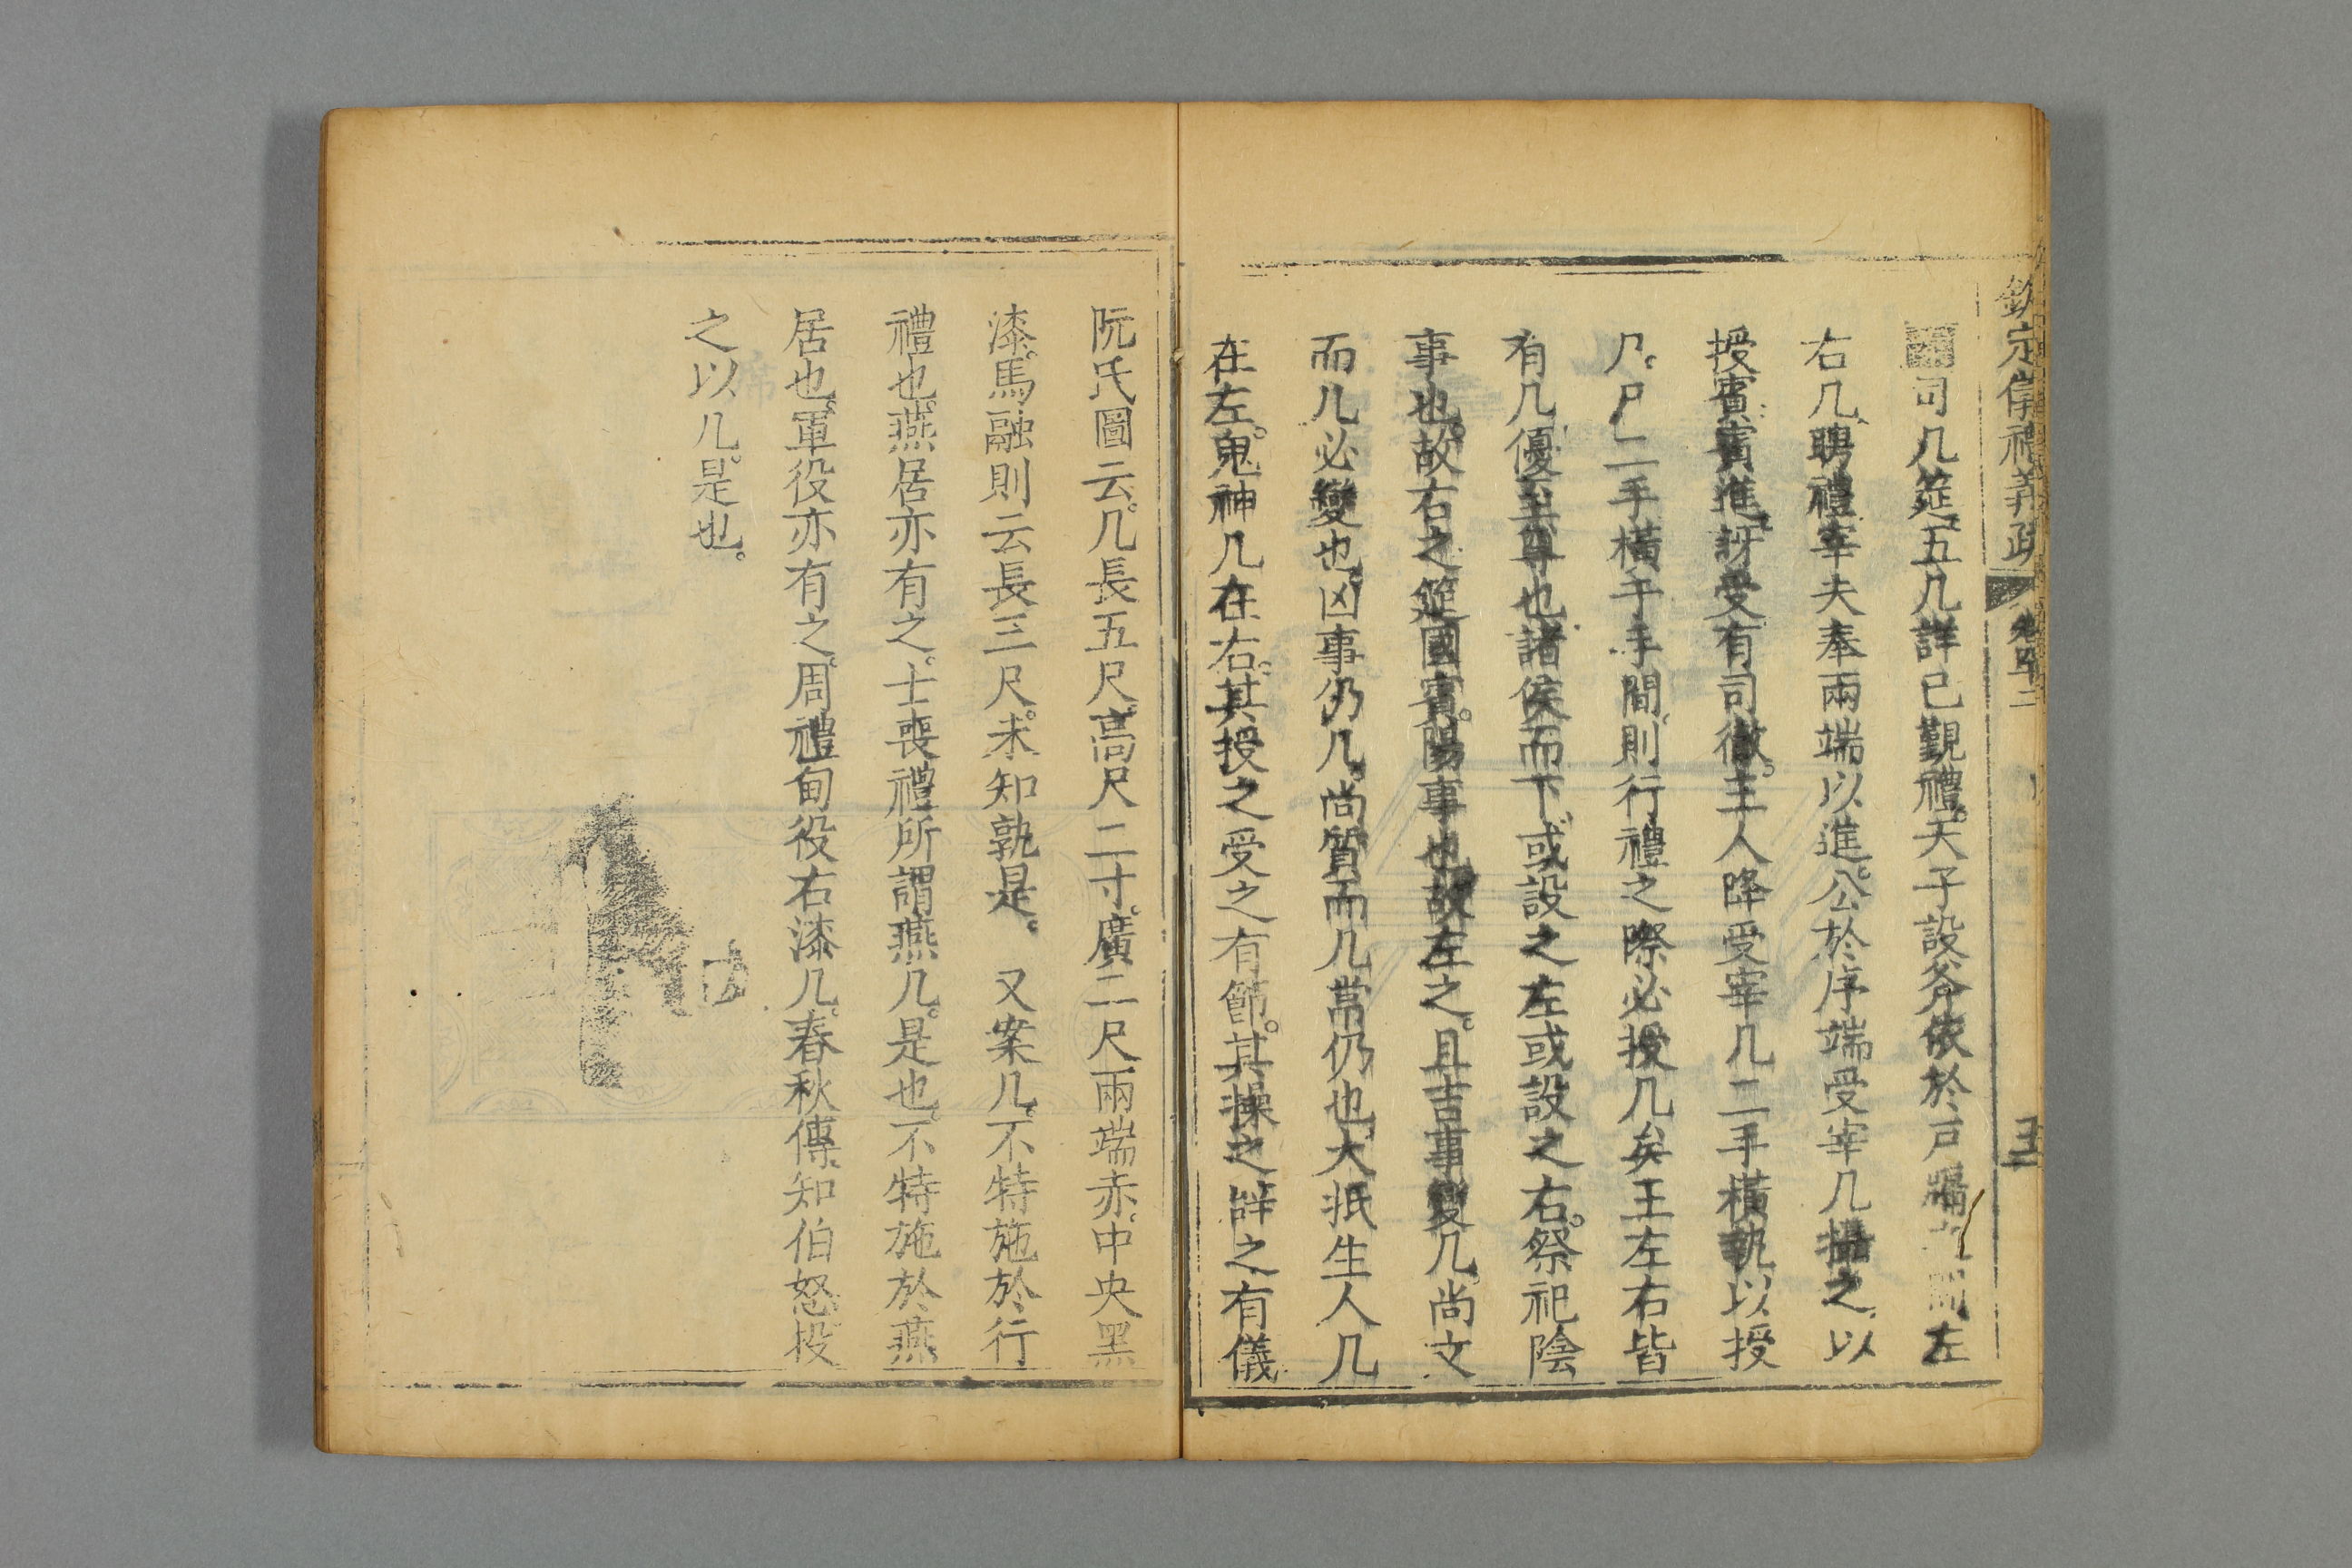 欽定儀禮義疏 卷四十二
司几筵五几詳已覲禮。天子設斧依於戶牖 間左
右几、聘禮宰夫奉兩端以進。公於序端受宰几攝之以
授賓賓進訝受有司徹。主人降受宰几二手橫執以授
尸。尸 二手橫 手間、則行禮之際必授几矣王左右皆
有几優至尊也諸侯而下或設之左或設之右。祭祀陰
事也。故右之筵國賓。陽事也故左之。且吉事變几尚文
而几必變也凶事仍几尚質而几常仍也大抵生人几
在左。鬼神几在右。其授之受之有節。其操之辟之有儀
阮氏圖云。几長五尺。高尺二寸。廣二尺兩端赤。中央黑
漆。馬融則云長三尺。未知孰是。 又案几。不特施於行
禮也。燕居亦有之。士喪禮所謂燕几。是也。不特施於燕
居也。軍役亦有之。周禮甸役右漆几。春秋傳知伯怒投
之以几。是也。